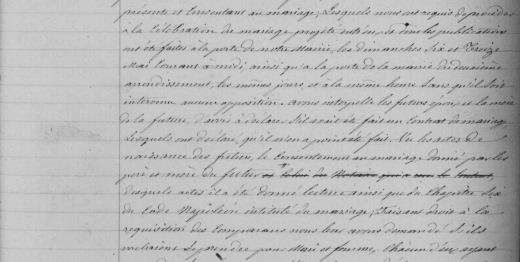 présente et Consentant au mariage; Lesquels nous ont requis de procéder
à la Célébration du mariage projeté entr'eux, et dont les publications
ont été faites à la porte de notre Mairie, les dimanches Six et Treize
Mai Courant à midi, ainsi qu'à la porte de la mairie du deuxième
arrondissement, les mêmes jours, et à la même heure Sans qu'il Soit
intervenu aucune opposition. avons interpellé les futurs époux, et la mère
de la future, d'avoir à déclarer S'il avait été fait un Contrat de mariage
Lesquels ont déclaré, qu'il n'en a point été fait. Vu les actes de
naissance des futurs, le Consentement au mariage donné par les
père et mère du futur
desquels actes il a été donné lecture ainsi que du Chapitre Six
du Code Napoléon intitulé du mariage; Faisant droit à la
requisition des Comparans nous leur avons demandé S'ils
veulent Se prendre pour Mari et femme, Chacun d'eux ayant